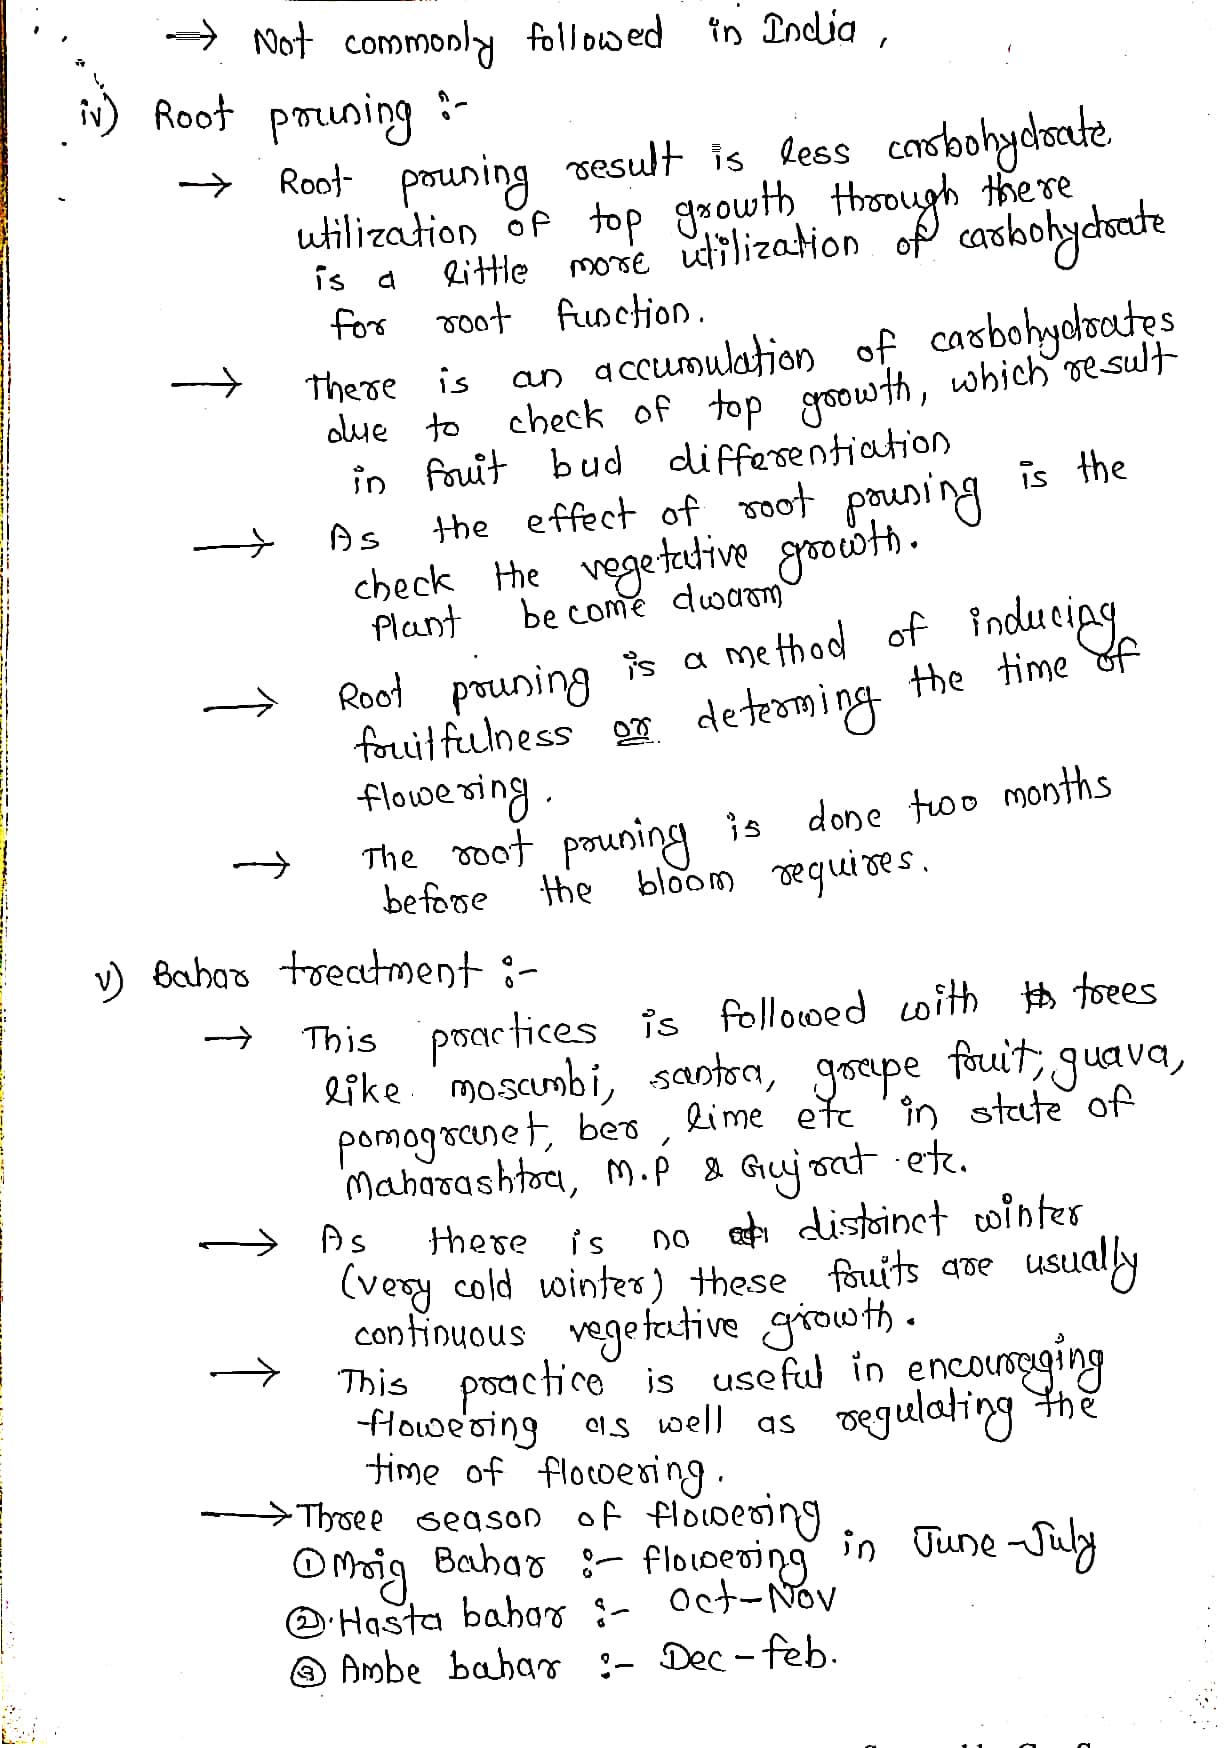 → Not commonly followed in India,
iv) Root pruning :-
→ Root pruning result is less carbohydrate
utilization of top growth through there
is a little more utilization of carbohydrate
for root function.
→ There is an accumulation of carbohydrates
due to check of top growth, which result
in fruit bud differentiation
→ As the effect of root pruning is the
check the vegetative growth.
Plant become dwarm
→ Root pruning is a method of inducing
fruitfulness or determing the time of
flowering.
→ The root pruning is done two months
before the bloom requires.
v) Bahar treatment :-
→ This practices is followed with trees
like mosambi, santra, grape fruit, guava,
pomogranet, ber, lime etc in state of
Maharashtra, M.P & Gujrat etc.
→ As there is no distrinct winter
(very cold winter) these fruits are usually
continuous vegetative growth.
→ This practice is useful in encouraging
flowering as well as regulating the
time of flowering.
→ Three season of flowering
① Mrig Bahar :- flowering in June-July
② Hasta bahar :- Oct-Nov
③ Ambe bahar :- Dec-feb.